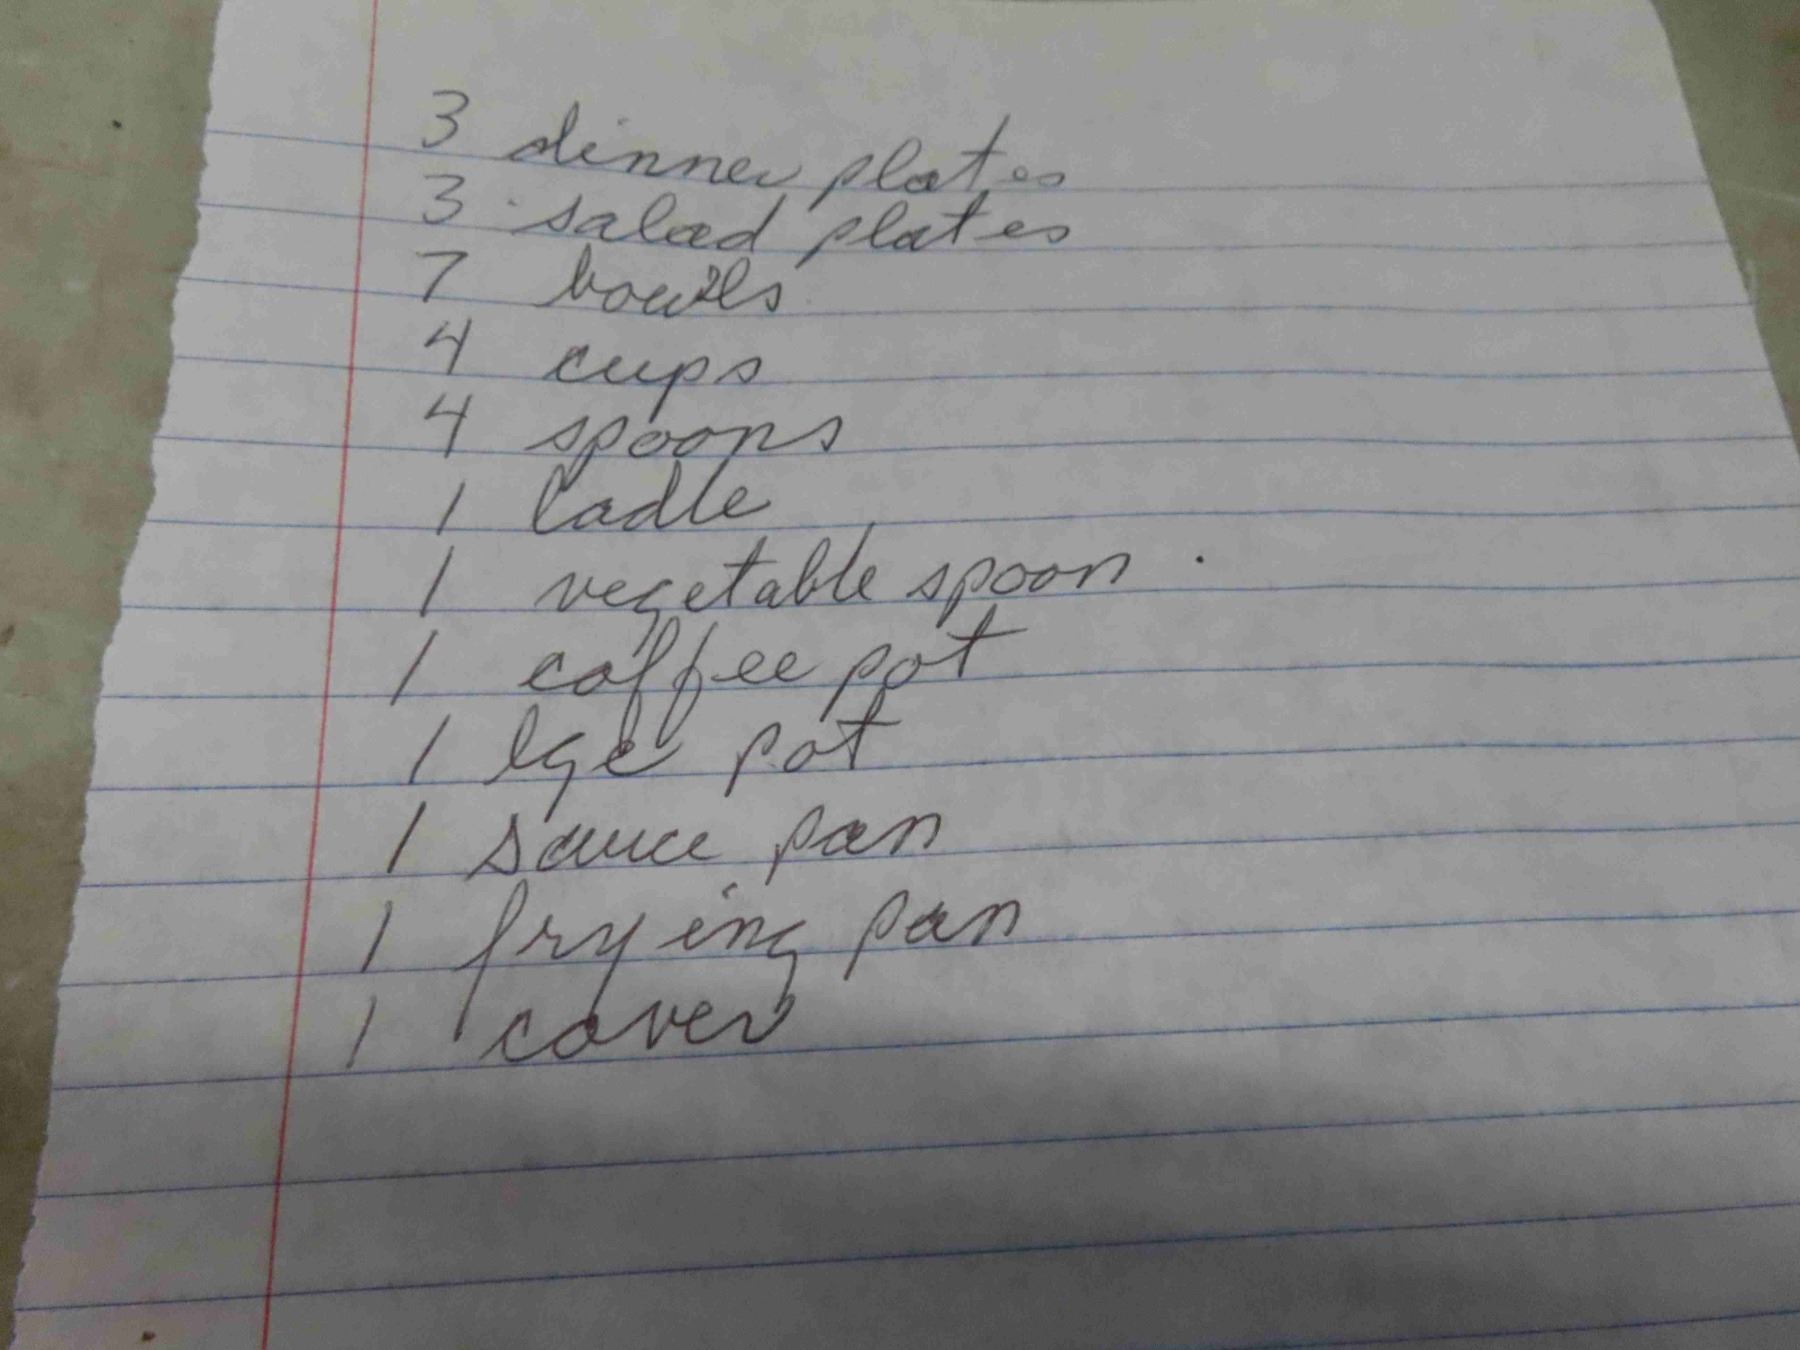 3 dinner plates
3 salad plates
7 bowls
4 cups
4 spoons
1 ladle
1 vegetable spoon
1 coffee pot
1 lge pot
1 sauce pan
1 frying pan
1 cover